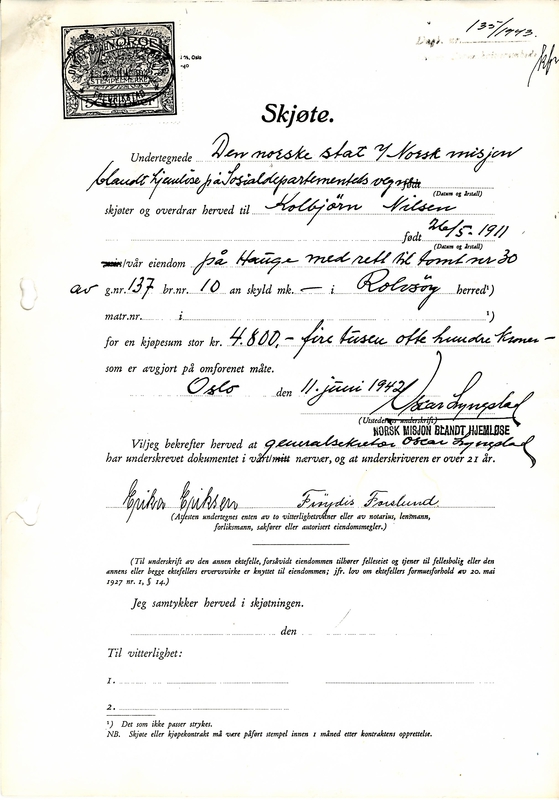 135/1943.
NORGE
STEMPELMERKE
Skjøte.
Undertegnede Den norske stat v/ Norsk misjon
blandt hjemløse på Sosialdepartementets vegne
(Datum og årstall)
skjøter og overdrar herved til Kolbjörn Nilsen
født 26/5-1911
(Datum og årstall)
min/vår eiendom på Hauge med rett til tomt nr 30
av g.nr. 137 br.nr. 10 an skyld mk. — i Rolvsöy herred¹)
matr.nr. i ¹)
for en kjøpesum stor kr. 4.800,- fire tusen otte hundre kroner -
som er avgjort på omforenet måte.
Oslo den 11. juni 1942
Oscar Lyngstad
(Utstederens underskrift)
NORSK MISJON BLANDT HJEMLØSE
Vi/jeg bekrefter herved at generalsekretær Oscar Lyngstad
har underskrevet dokumentet i vårt/mitt nærvær, og at underskriveren er over 21 år.
Erika Eriksen Frøydis Forslund
(Attesten undertegnes enten av to vitterlighetsvitner eller av notarius, lensmann,
forliksmann, sakfører eller autorisert eiendomsmegler.)
(Til underskrift av den annen ektefelle, forsåvidt eiendommen tilhører felleseiet og tjener til fellesbolig eller den
annens eller begge ektefellers ervervsvirke er knyttet til eiendommen; jfr. lov om ektefellers formuesforhold av 20. mai
1927 nr. 1, § 14.)
Jeg samtykker herved i skjøtningen.
den
Til vitterlighet:
1.
2.
¹) Det som ikke passer strykes.
NB. Skjøte eller kjøpekontrakt må være påført stempel innen 1 måned etter kontraktens opprettelse.